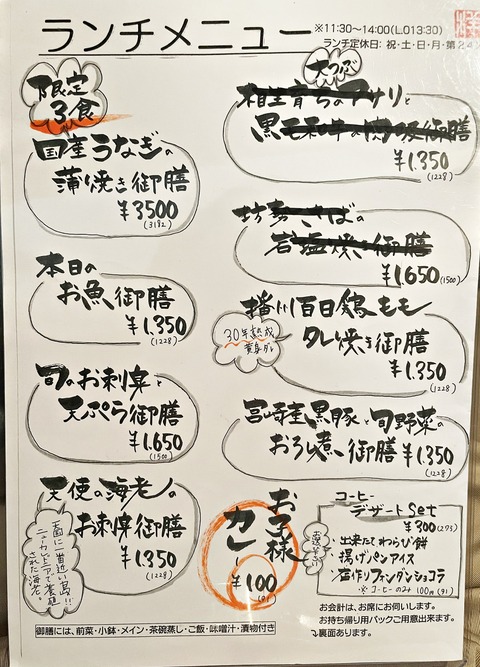 ランチメニュー
※11:30～14:00(L.O13:30)
ランチ定休日: 祝・土・日・月・第2
限定
3食
国産うなぎの
蒲焼き御膳
¥3500
(3182)
本日の
お魚御膳
¥1.350
(1228)
旬のお刺身と
天ぷら御膳
¥1.650
(1500)
天使の海老の
お刺身御膳
¥1.350
(1228)
天国に一番近い島!!
ニューカレドニアで養殖
された海老。
大つぶ
相生育ちのアサリと
黒毛和牛の
御膳
¥1.350
(1228)
坊勢さばの
岩塩焼き御膳
¥1.650
(1500)
播州百日鶏もも
タレ焼き御膳
30年熟成
¥1.350
(1228)
宮崎産黒豚と旬野菜の
おろし煮御膳
¥1.350
(1228)
お子様
カレー
¥100
(91)
コーヒー
デザートSet
¥300(273)
出来たてわらび餅
揚げパンアイス
手作りフォンダンショコラ
※コーヒーのみ 100円(91)
お会計は、お席にお伺いします。
お持ち帰り用パックご用意出来ます。
↴裏面あります。
御膳には、前菜・小鉢・メイン・茶碗蒸し・ご飯・味噌汁・漬物付き